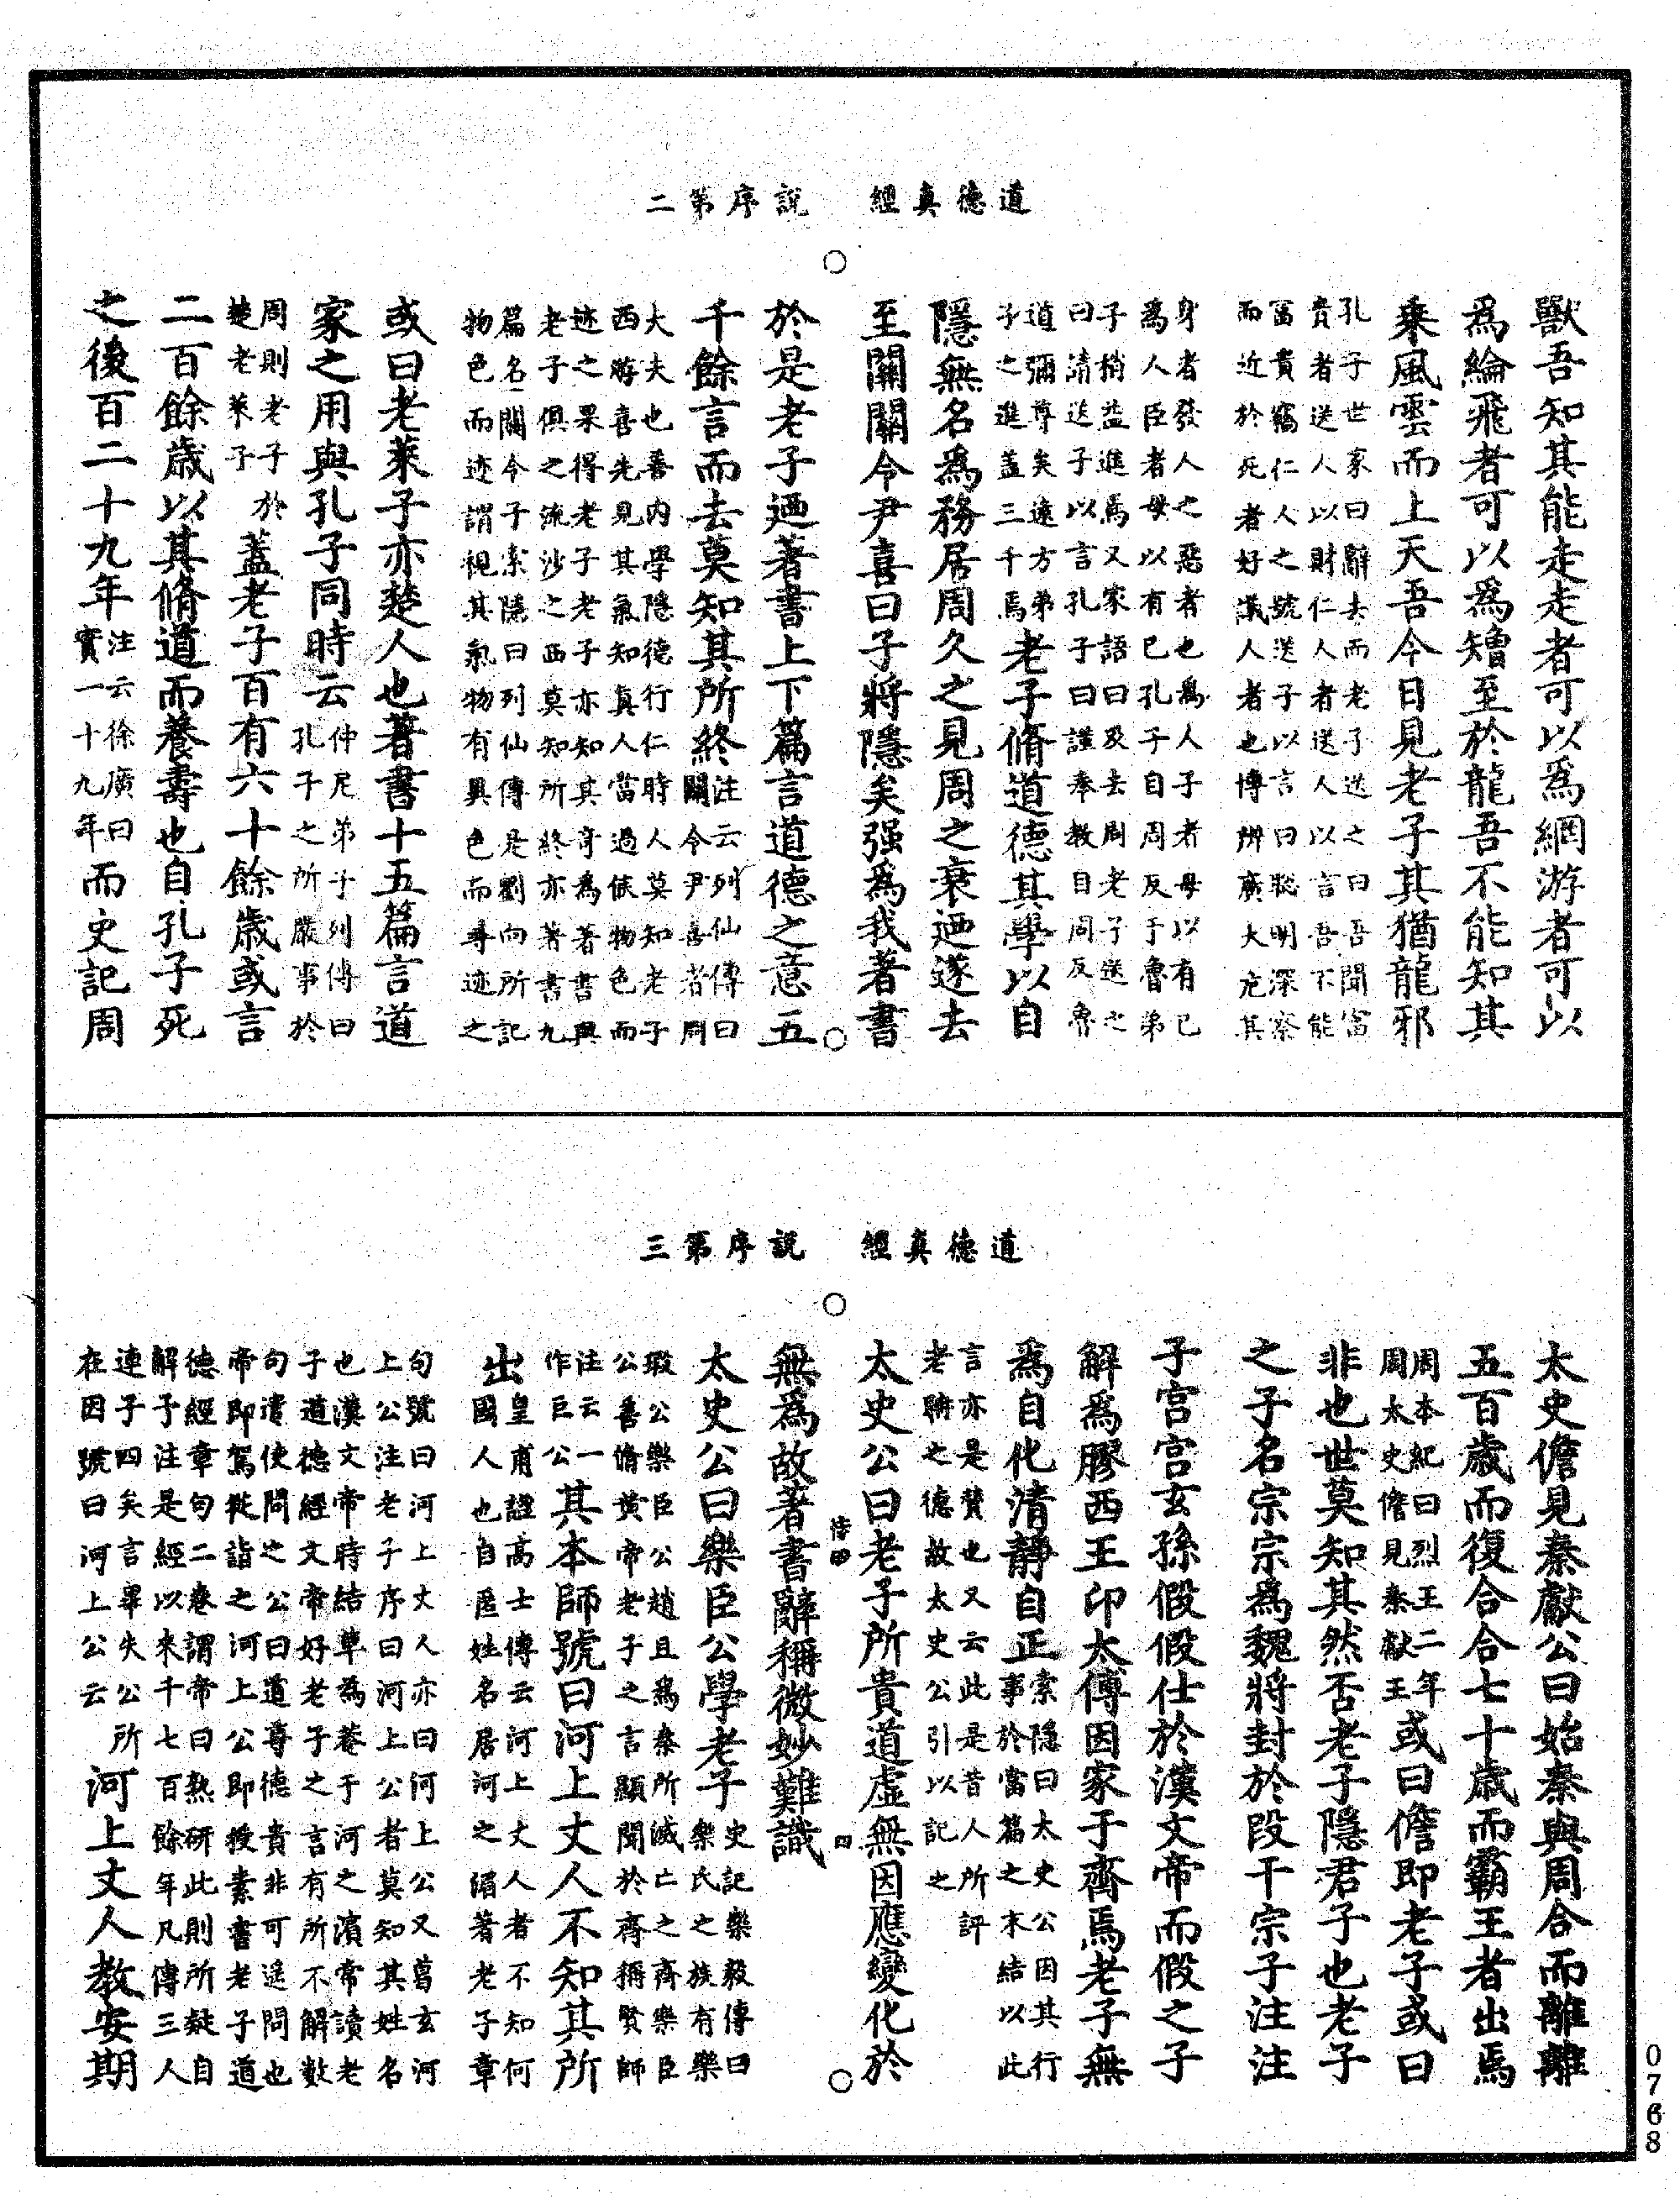 道德真經　說序第二
獸吾知其能走走者可以爲網游者可以
爲綸飛者可以爲矰至於龍吾不能知其
乘風雲而上天吾今日見老子其猶龍邪
孔子世家曰辭去而老子送之曰吾聞富
貴者送人以財仁人者送人以言吾不能
富貴竊仁人之號送子以言曰聦明深察
而近於死者好議人者也博辨廣大危其
身者發人之惡者也爲人子者毋以有己
爲人臣者毋以有己孔子自周反于魯弟
子稍益進焉又家語曰及去周老子送之
曰請送子以言孔子曰謹奉教自周反魯
道彌尊矣遠方弟
子之進蓋三千焉
老子脩道德其學以自
隱無名爲務居周久之見周之衰迺遂去
至關關令尹喜曰子將隱矣强爲我著書
於是老子迺著書上下篇言道德之意五
千餘言而去莫知其所終
注云列仙傳曰
關令尹喜者周
大夫也善内學隱德行仁時人莫知老子
西游喜先見其氣知真人當過候物色而
迹之果得老子老子亦知其奇爲著書與
老子俱之流沙之西莫知所終亦著書九
篇名關令子索隱曰列仙傳是劉向所記
物色而迹謂視其氣物有異色而尋迹之
或曰老萊子亦楚人也著書十五篇言道
家之用與孔子同時云
仲尼弟子列傳曰
孔子之所嚴事於
周則老子於
楚老萊子
蓋老子百有六十餘歲或言
二百餘歲以其脩道而養壽也自孔子死
之後百二十九年
注云徐廣曰
實一十九年
而史記周
道德真經　說序第三
太史儋見秦獻公曰始秦與周合而離離
五百歲而復合合七十歲而霸王者出焉
周本紀曰烈王二年
周太史儋見秦獻王
或曰儋即老子或曰
非也世莫知其然否老子隱君子也老子
之子名宗宗爲魏將封於段干宗子注注
子宮宮玄孫假假仕於漢文帝而假之子
解爲膠西王卬太傅因家于齊焉老子無
爲自化清靜自正
索隱曰太史公因其行
事於當篇之末結以此
言亦是贊也又云此是昔人所評
老聃之德故太史公引以記之
太史公曰老子所貴道虛無因應變化於
無爲故著書辭稱微妙難識
太史公曰樂臣公學老子
史記樂毅傳曰
樂氏之族有樂
瑕公樂臣公趙且爲秦所滅亡之齊樂臣
公善脩黃帝老子之言顯聞於齊稱賢師
注云一
作巨公
其本師號曰河上丈人不知其所
出
皇甫謐高士傳云河上丈人者不知何
國人也自匿姓名居河之湄著老子章
句號曰河上丈人亦曰河上公又葛玄河
上公注老子序曰河上公者莫知其姓名
也漢文帝時結草爲菴于河之濱常讀老
子道德經文帝好老子之言有所不解數
句遣使問之公曰道尊德貴非可遙問也
帝即駕從詣之河上公即授素書老子道
德經章句二卷謂帝曰熟研此則所疑自
解子注是經以來千七百餘年凡傳三人
連子四矣言畢失公所
在因號曰河上公云
河上丈人教安期
0768